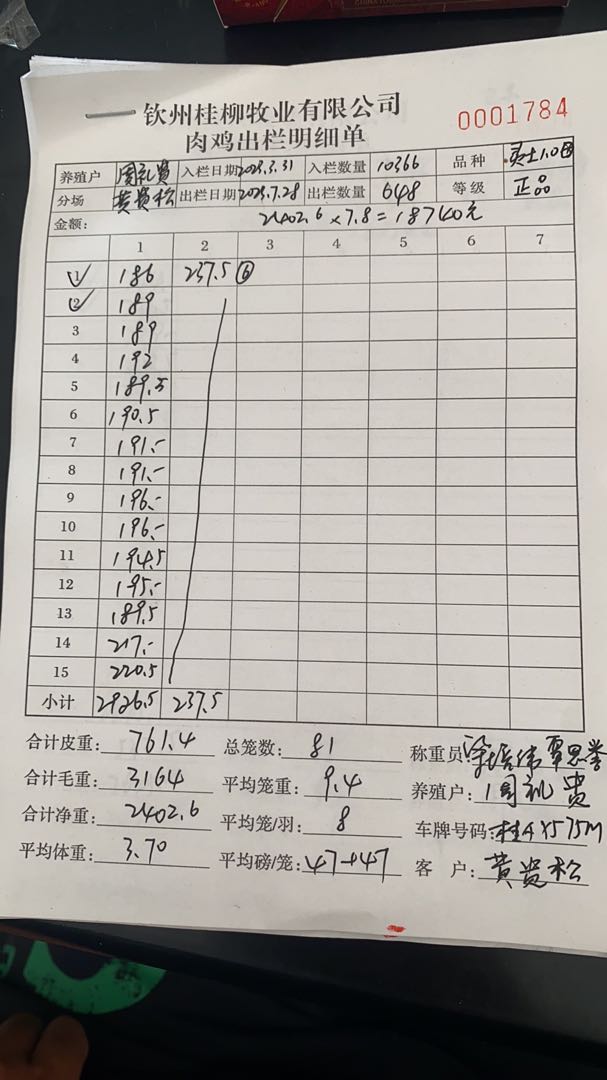 钦州桂柳牧业有限公司
0001784
肉鸡出栏明细单
养殖户 周礼贵 入栏日期 2023.3.31 入栏数量 10366 品种
分场 黄贵松 出栏日期 2023.7.28 出栏数量 648 等级 正品
金额: 2402.6×7.8=18740元
1 2 3 4 5 6 7
1 186 237.5 ⑥
2 189
3 189
4 192
5 189.5
6 190.5
7 191.-
8 191.-
9 196.-
10 196.-
11 194.5
12 195.-
13 189.5
14 217.-
15 220.5
小计 2926.5 237.5
合计皮重: 761.4 总笼数: 81 称重员
合计毛重: 3164 平均笼重: 9.4 养殖户: 周礼贵
合计净重: 2402.6 平均笼/羽: 8 车牌号码: 桂AX575M
平均体重: 3.70 平均磅/笼: 47+47 客户: 黄贵松